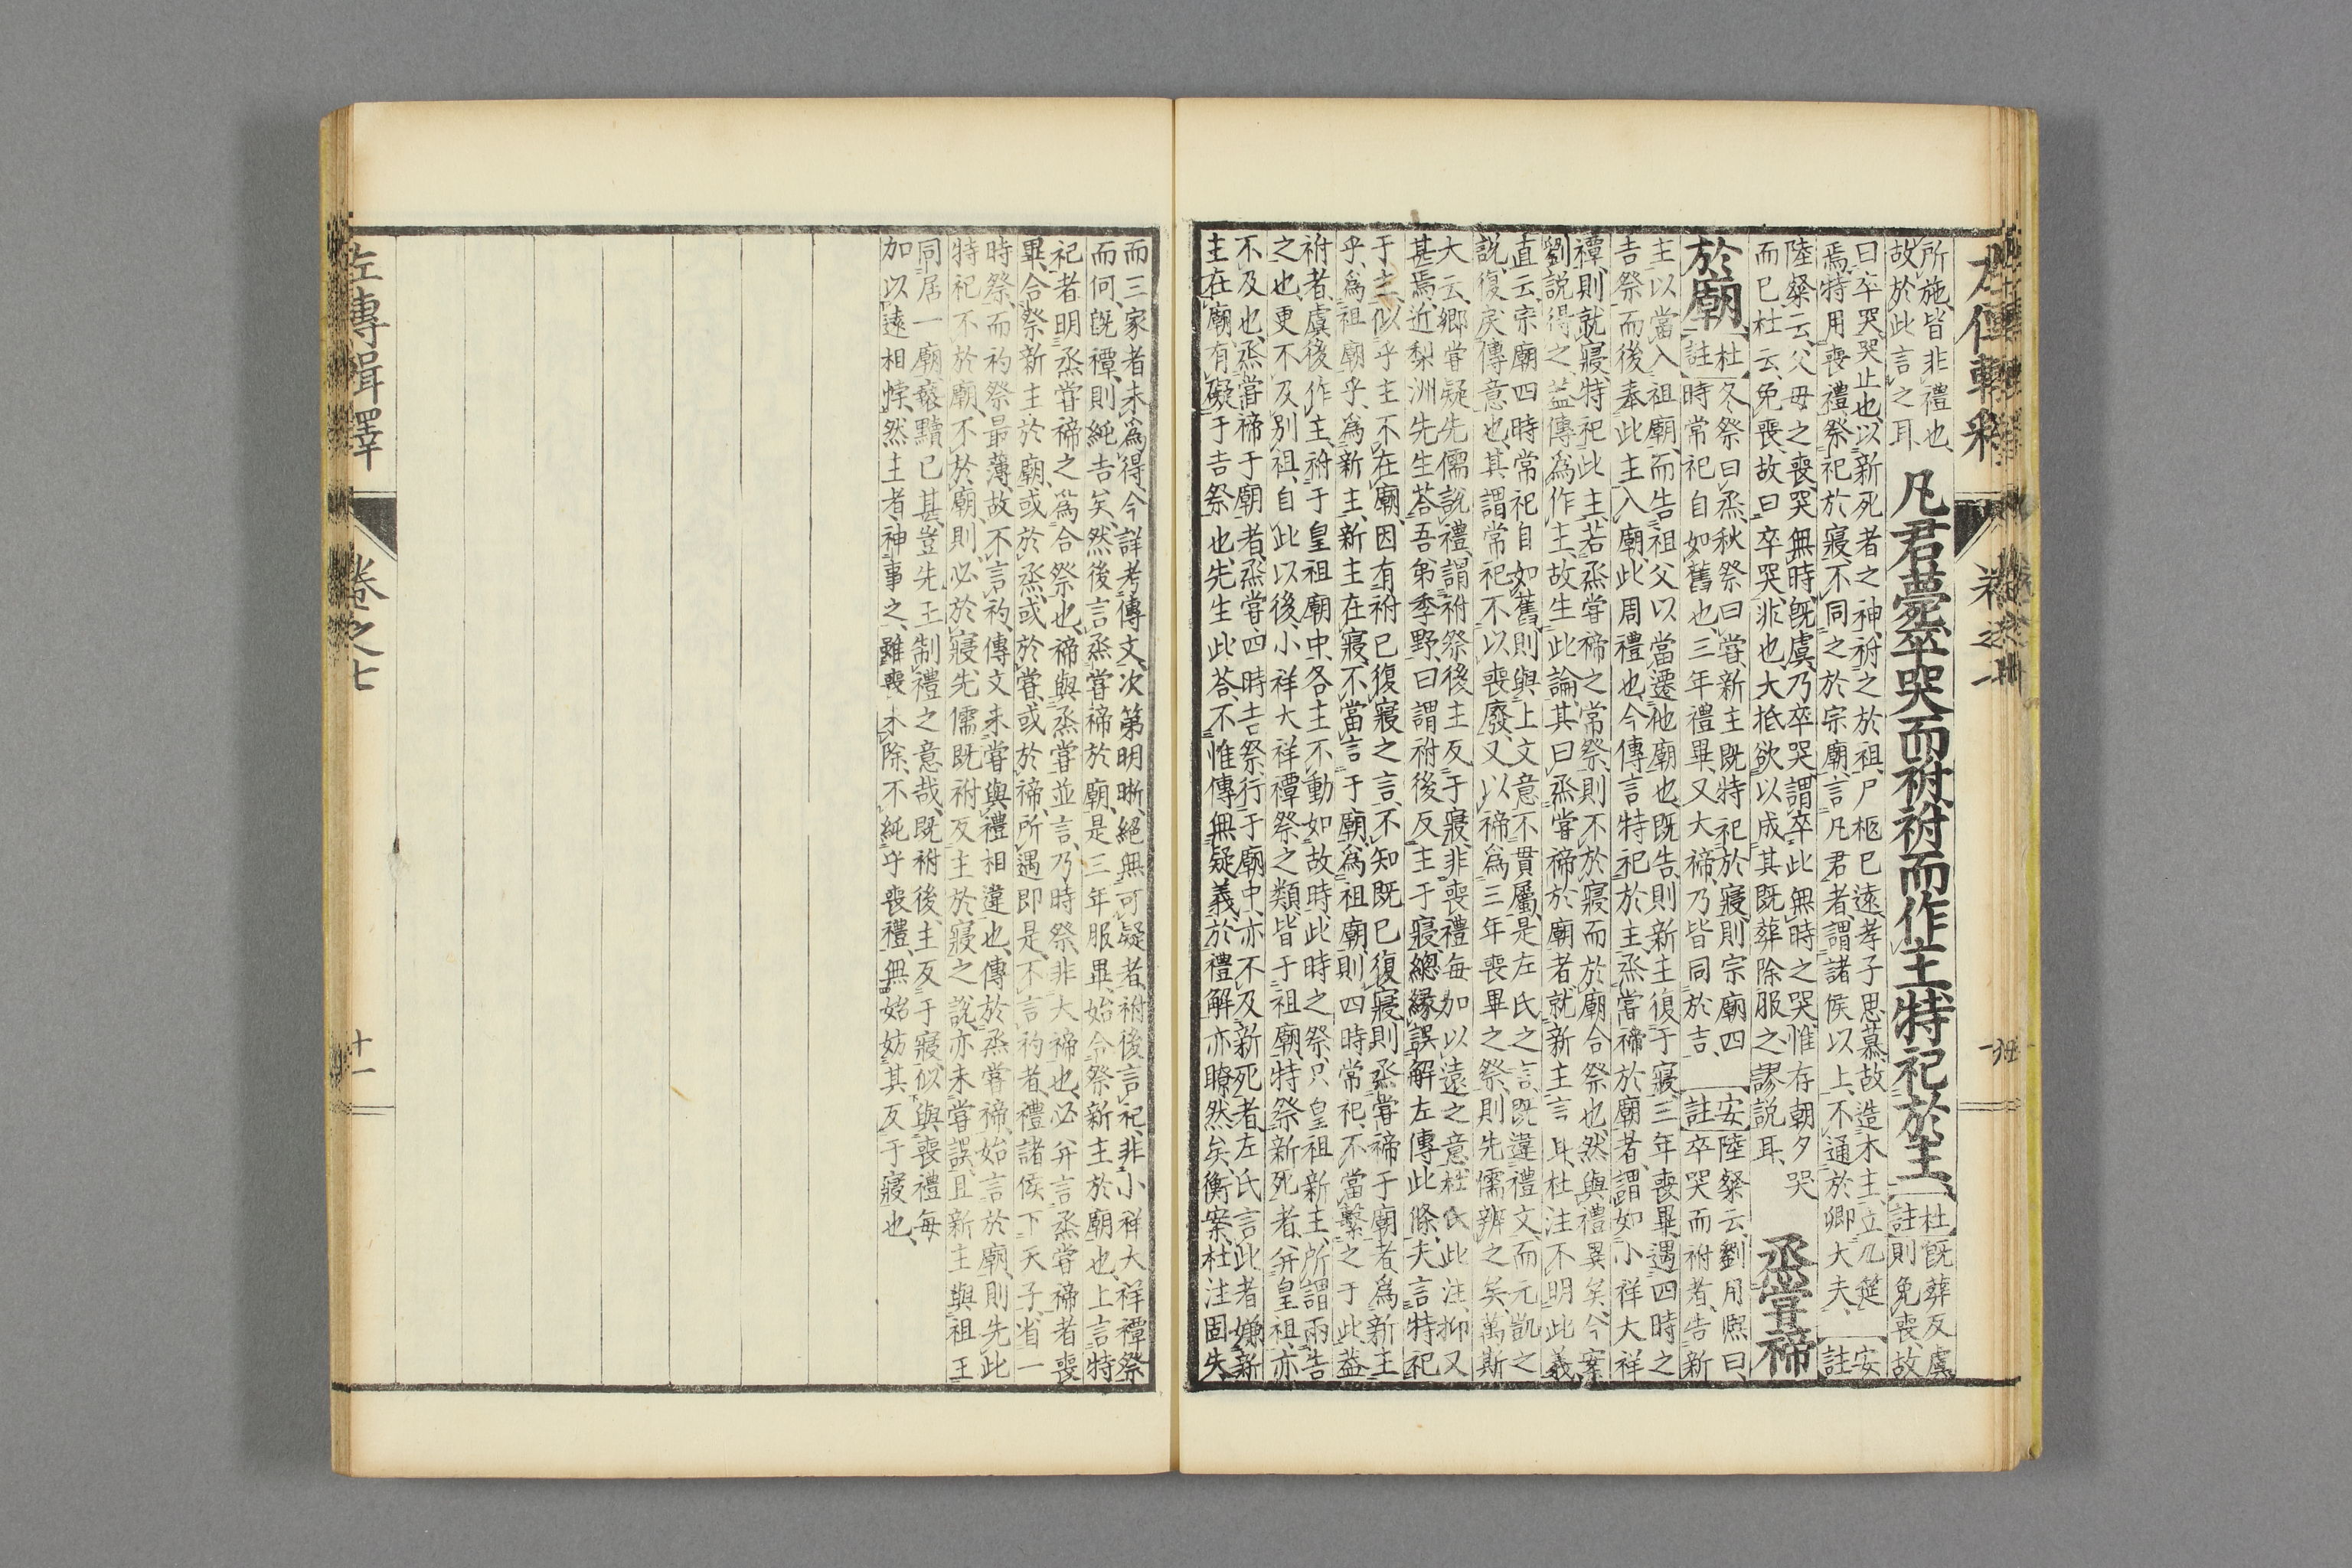 所施、皆非禮也、
故於此言之耳、
凡君薨卒哭而祔祔而作主特祀於主
杜註
既葬反虞
則免喪、故
曰卒哭、哭止也、以新死者之神、祔之於祖、尸柩已遠、孝子思慕、故造木主、立几筵
焉、特用喪禮、祭祀於寢、不同之於宗廟、言凡君者、謂諸侯以上、不通於卿大夫、
安註
陸粲云、父毋之喪、哭無時、既虞、乃卒哭、謂卒此無時之哭、惟存朝夕哭
而已、杜云、免喪、故曰卒哭、非也、大抵欲以成其既葬除服之謬說耳、
烝嘗禘
於廟
杜註
冬祭曰烝、秋祭曰嘗、新主既特祀於寢、則宗廟四
時常祀自如舊也、三年禮畢、又大禘、乃皆同於吉、
安註
陸粲云、劉用熙曰、
卒哭而祔者、告新
主以當入祖廟、而告祖父以當遷他廟也、既告、則新主復于寢、三年喪畢、遇四時之
吉祭而後奉此主入廟、此周禮也、今傳言特祀於主、烝嘗禘於廟者、謂如小祥大祥
禫、則就寢特祀此主、若烝嘗禘之常祭、則不於寢而於廟合祭也、然與禮異矣、今案
劉說得之、蓋傳為作主、故生此論、其曰烝嘗禘於廟者、就新主言耳、杜注不明此義、
直云、宗廟四時常祀自如舊、則與上文意不貫屬、是左氏之言、既違禮文、而元凱之
說、復戾傳意也、其謂常祀不以喪廢、又以禘為三年喪畢之祭、則先儒辨之矣、萬斯
大云、鄉嘗疑先儒說禮、謂祔祭後主反于寢、非喪禮每加以遠之意、杜氏此注、抑又
甚焉、近梨洲先生荅吾弟季野、曰謂祔後反主于寢、緫緣誤解左傳此條、夫言特祀
于主、似乎主不在廟、因有祔已復寢之言、不知既已復寢、則烝嘗禘于廟者、為新主
乎、為祖廟乎、為新主、新主在寢、不當言于廟、為祖廟、則四時常祀、不當繫之于此、蓋
祔者、虞後作主、祔于皇祖廟中、各主不動如故、時此時之祭、只皇祖新主、所謂兩告
之也、更不及別祖、自此以後、小祥大祥禫祭之類、皆于祖廟特祭新死者、并皇祖亦
不及也、烝嘗禘于廟者、烝嘗四時吉祭、行于廟中、亦不及新死者、左氏言此者、嫌新
主在廟、有礙于吉祭也、先生此荅、不惟傳無疑義、於禮解亦瞭然矣、衡案、杜注固失
而三家者未為得、今詳考傳文、次第明晰、絕無可疑者、祔後言祀、非小祥大祥禫祭
而何、既禫、則純吉矣、然後言烝嘗禘於廟、是三年服畢、始合祭新主於廟也、上言特
祀者、明烝嘗禘之為合祭也、禘與烝嘗並言、乃時祭、非大禘也、必并言烝嘗禘者、喪
畢、合祭新主於廟、或於烝、或於嘗、或於禘、所遇即是、不言礿者、禮諸侯下天子、省一
時祭、而礿祭最薄、故不言礿、傳文未嘗與禮相違也、傳於烝嘗禘、始言於廟、則先此
特祀不於廟、不於廟、則必於寢、先儒既祔反主於寢之說、亦未嘗誤、且新主與祖王
同居一廟、褻黷已甚、豈先王制禮之意哉、既祔後、主反于寢、似與喪禮每
加以遠相悖、然主者、神事之、雖喪未除、不純乎喪禮、無始妨其反于寢也、
左傳輯釋
卷之七
十一